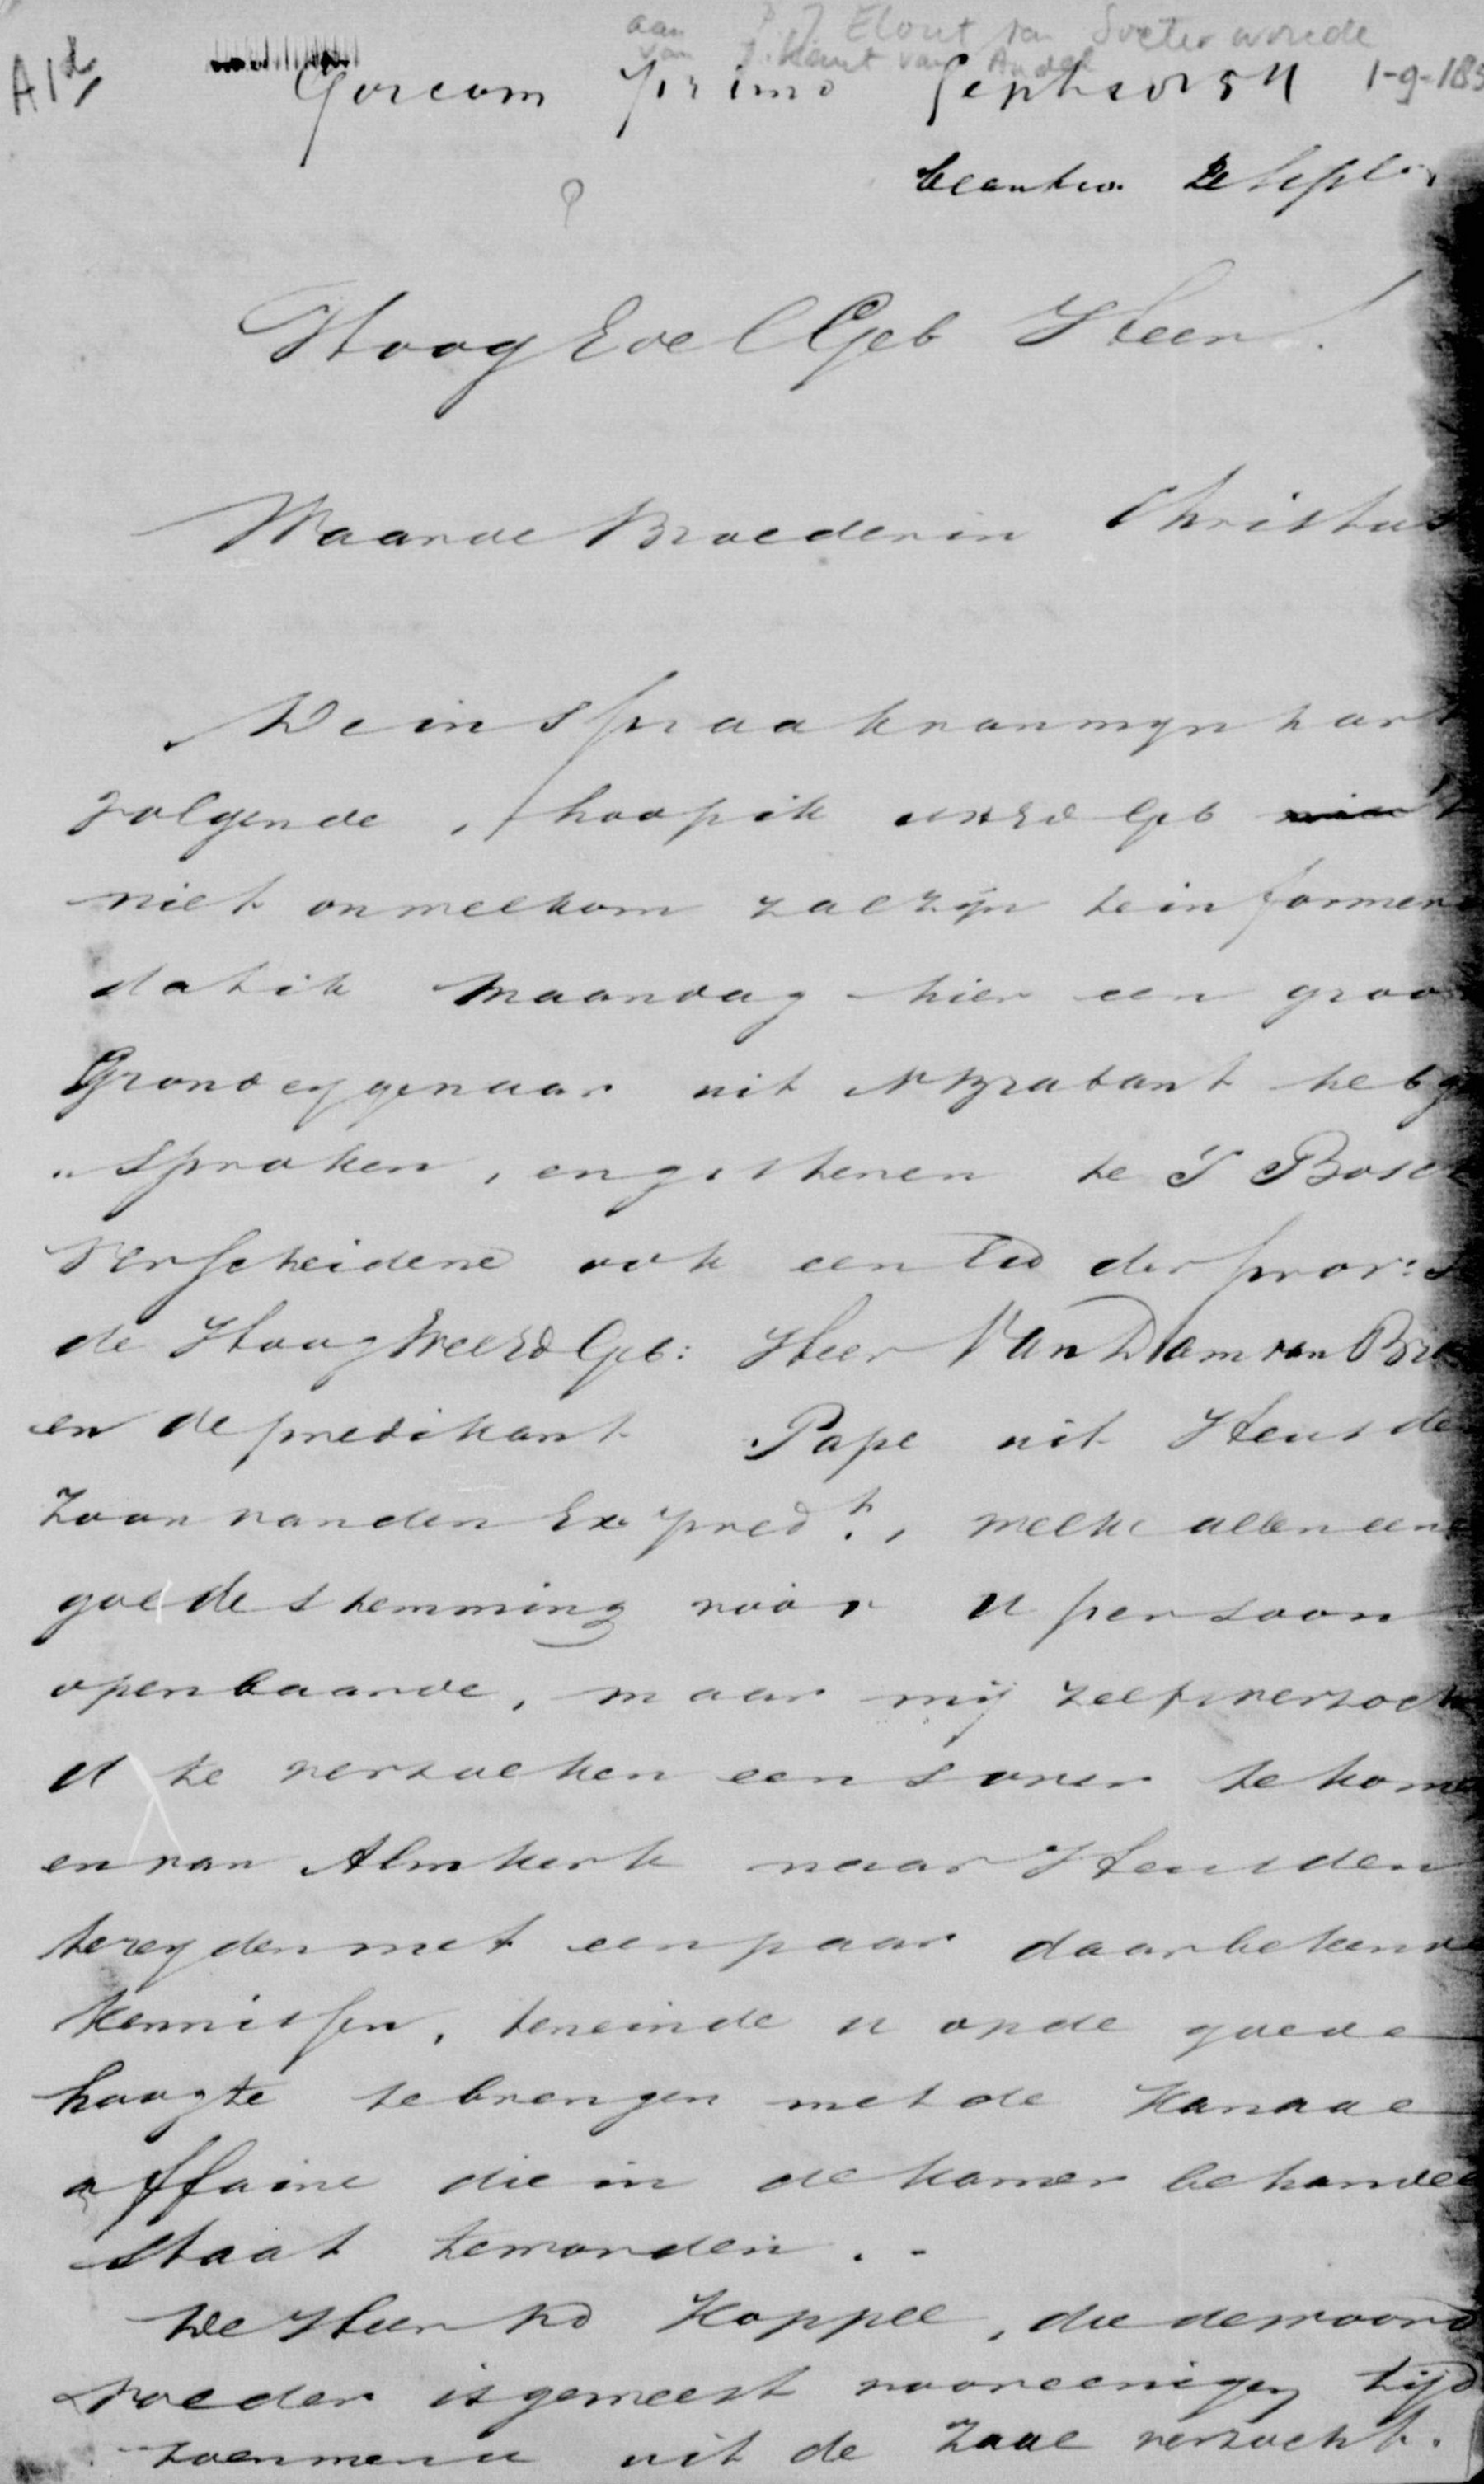 aan P. J. Elout van Soeterwoude
van J. Kant van Andel
A1d
Gorcom primo Septber 54 1-9-185
beantw. 2 Sept
Hoog Edel Geb Heer!
Waarde Broeder in Christus
De inspraak van myn hart
volgende, hoop ik UHEd Geb
niet onwelkom zal zijn te informere
dat ik Maandag hier een groo
Grondeygenaar uit NBrabant heb ge
"sproken, en gisteren te S Bosch
verscheidene ook een Lid der prov: S
de HoogWelEd Geb: Heer Van Dam van Bra
en de predikant Pape uit Heusde
Zoon van den Ex pred.t, welke allen eene
goede stemming voor U persoon
openbaarde, maar mij zelf verzoch
U te verzoeken eens over te kome
en van Almkerk naar Heusden
te reyden met een paar daar bekende
kennissen, teneinde U op de goede
hoogte te brengen met de Kanaal
affaire die in de kamer behandel
staat te worden. -
De Heer Ko Koppel, die de woord
voeder is geweest voor eenigen tijd
toen men U uit de Zaal verzocht.